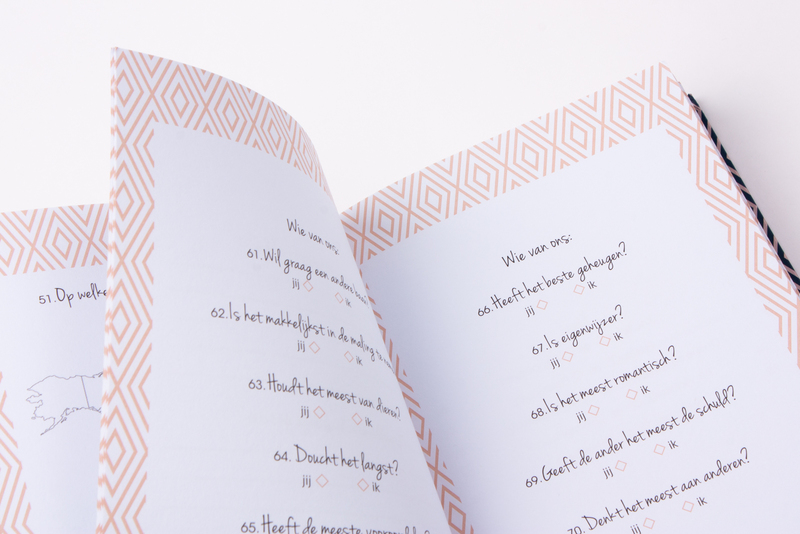 51. Op welke
Wie van ons:
61. Wil graag een andere
jij ik
62. Is het makkelijkst in de maling te
jij ik
63. Houdt het meest van dieren?
jij ik
64. Doucht het langst?
jij ik
65. Heeft de meeste
Wie van ons:
66. Heeft het beste geheugen?
jij ik
67. Is eigenwijzer?
jij ik
68. Is het meest romantisch?
jij ik
69. Geeft de ander het meest de schuld?
jij ik
70. Denkt het meest aan anderen?
jij ik